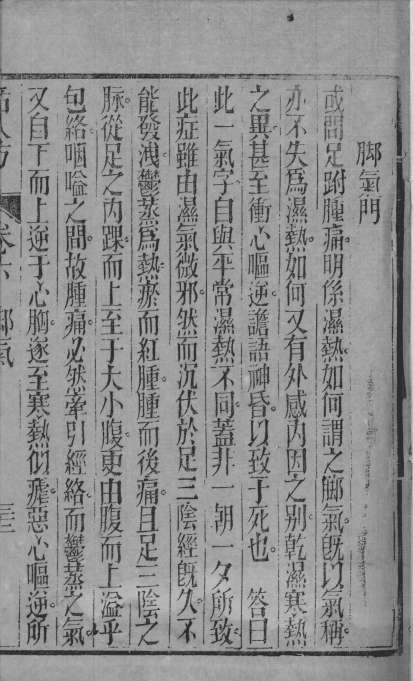 脚氣門
或問足跗腫痛明係濕熱如何謂之脚氣旣以氣稱
亦不失爲濕熱如何又有外感内因之别乾濕寒熱
之異甚至衝心嘔逆譫語神昏以致于死也 答曰
此一氣字自與平常濕熱不同蓋非一朝一夕所致
此症雖由濕氣微邪然而沉伏於足三陰經旣久不
能發洩鬱蒸爲熱瘀而紅腫腫而後痛且足三陰之
脉從足之内踝而上至于大小腹更由腹而上溢乎
包絡咽嗌之間故腫痛必然牽引經絡而鬱蒸之氣
又自下而上逆于心胸遂至寒熱似瘧惡心嘔逆所
活人方 卷六 脚氣